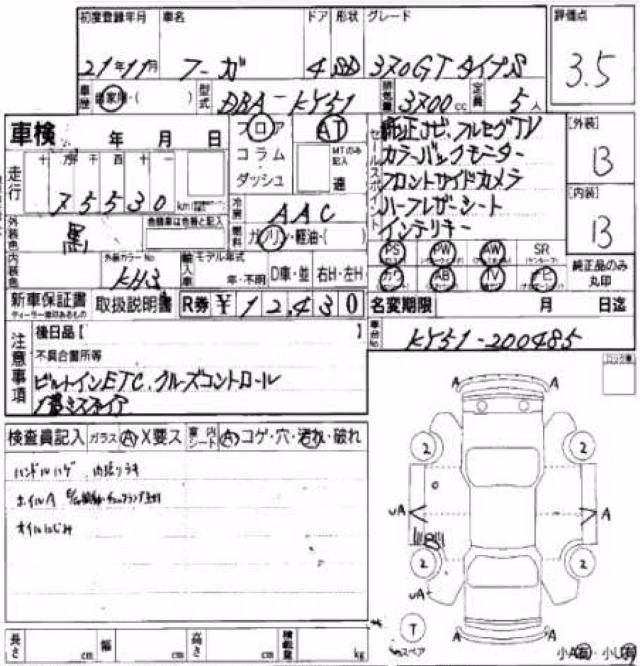 初度登録年月 車名 ドア 形状 グレード 評価点
21年11月 フーガ 4 SD 370GT タイプS 3.5
車歴 自家用・( ) 型式 DBA-KY51 排気量 3700cc 定員 5人
車検 年 月 日 フロア AT セールスポイント 純正ナビ、フルセグTV [外装]
コラム MTのみ記入 カラーバックモニター B
走行 十万千百十一 ダッシュ 速 フロントサイドカメラ
75530 km 冷房 AAC ハーフレザーシート [内装]
外装色 黒 色替車は色替と記入 燃料 ガソリン・軽油・( ) インテリキー B
PS PW AW SR
内装色 外装カラーNo KH3 輸入車 モデル年式 年・不明 D車・並 右H・左H カワ AB TV ナビ 純正品のみ丸印
新車保証書 取扱説明書 R券 ¥12,430 名変期限 月 日迄
ディーラー捺印あるもの
車台No KY51-200485
注意事項 後日品[ ]
不具合箇所等
ビルトインETC、クルーズコントロール
検査員記入 ガラス A X要ス 室内シート A コゲ・穴・汚れ・破れ
ハンドルハゲ 内張りウキ
ホイルA
オイルにじみ
A A
2 2
UA A
2 2
UA A
T スペア A A
長さ cm 幅 cm 高さ cm 積載量 kg